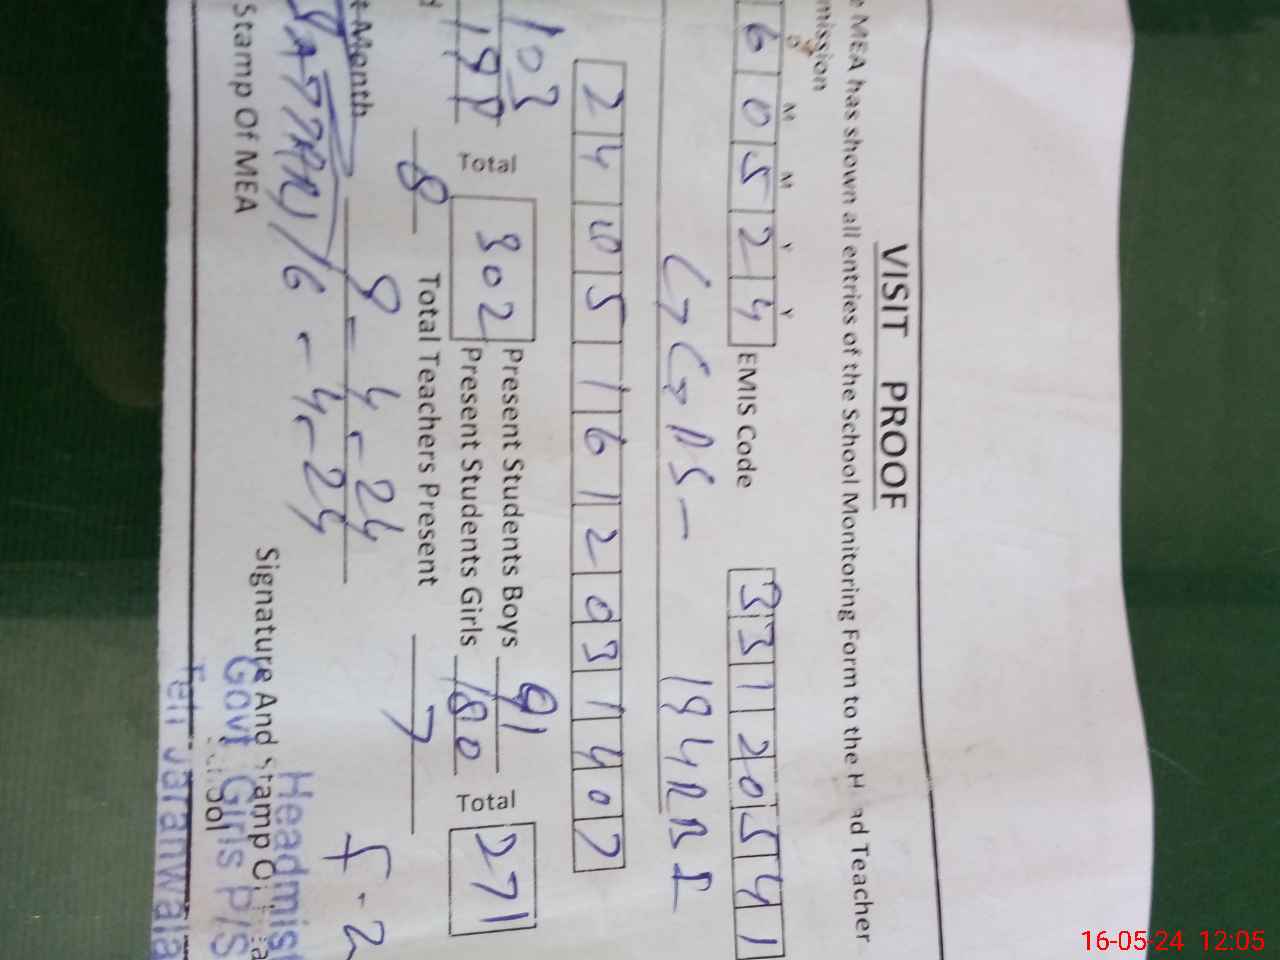 VISIT PROOF
MEA has shown all entries of the School Monitoring Form to the Head Teacher
mission
D M M Y Y
6 0 5 2 4 EMIS Code 3 3 1 2 0 5 4 1
GGPS - 194RBI
2 4 0 5 1 6 1 2 0 3 1 4 0 7
103 Present Students Boys 91
198 Total 302 Present Students Girls 180 Total 271
8 Total Teachers Present 7
t Month 8-4-24 5-2
16-4-24
Stamp Of MEA Signature And Stamp Of
Headmis
Govt Girls P/S
Teh Jaranwala
16-05-24 12:05